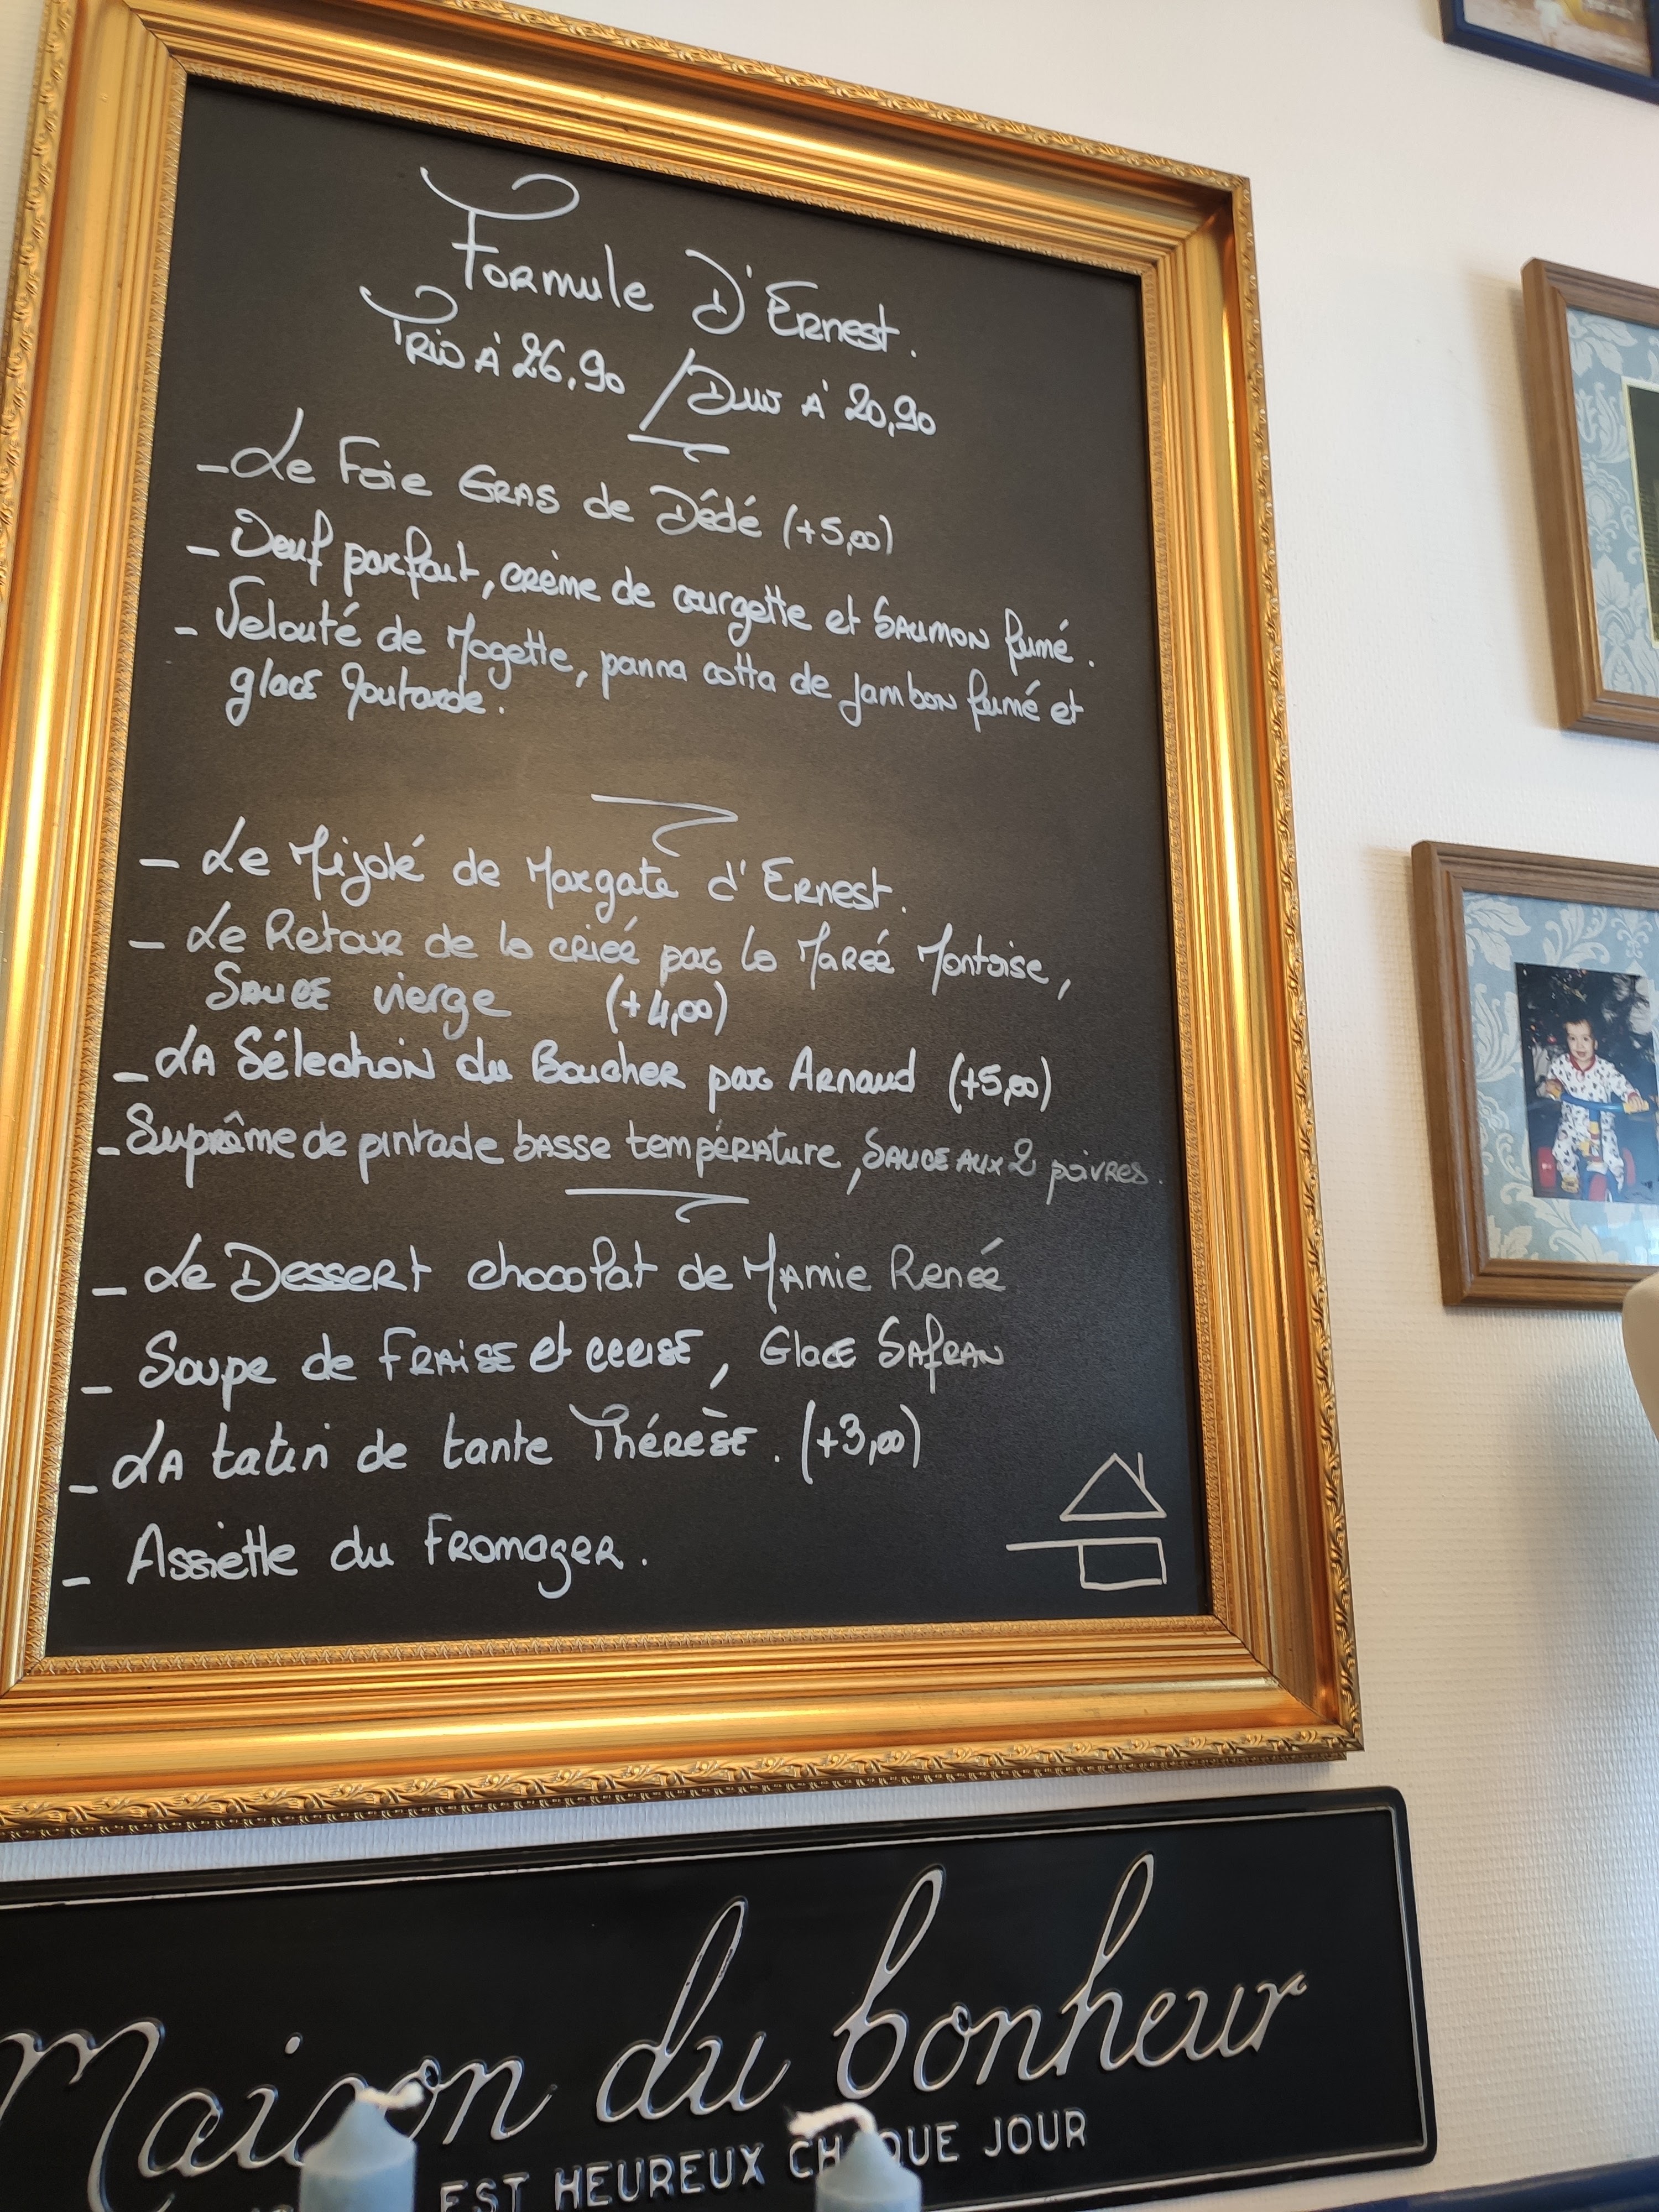 Formule D'Ernest.
Trio à 26,90 / Duo à 20,90
- Le Foie Gras de Dédé (+5,00)
- Oeuf parfait, crème de courgette et saumon fumé.
- Velouté de Mogette, panna cotta de jambon fumé et
glace Moutarde.
- Le Mijoté de Margate d'Ernest.
- Le Retour de la criée par la Marée Montoise,
Sauce vierge (+4,00)
- La Sélection du Boucher par Arnaud (+5,00)
- Suprême de pintade basse température, sauce aux 2 poivres.
- Le Dessert chocolat de Mamie Renée
- Soupe de Fraise et cerise, Glace Safran
- La tatin de tante Thérèse. (+3,00)
- Assiette du Fromager.
Maison du bonheur
EST HEUREUX CHAQUE JOUR